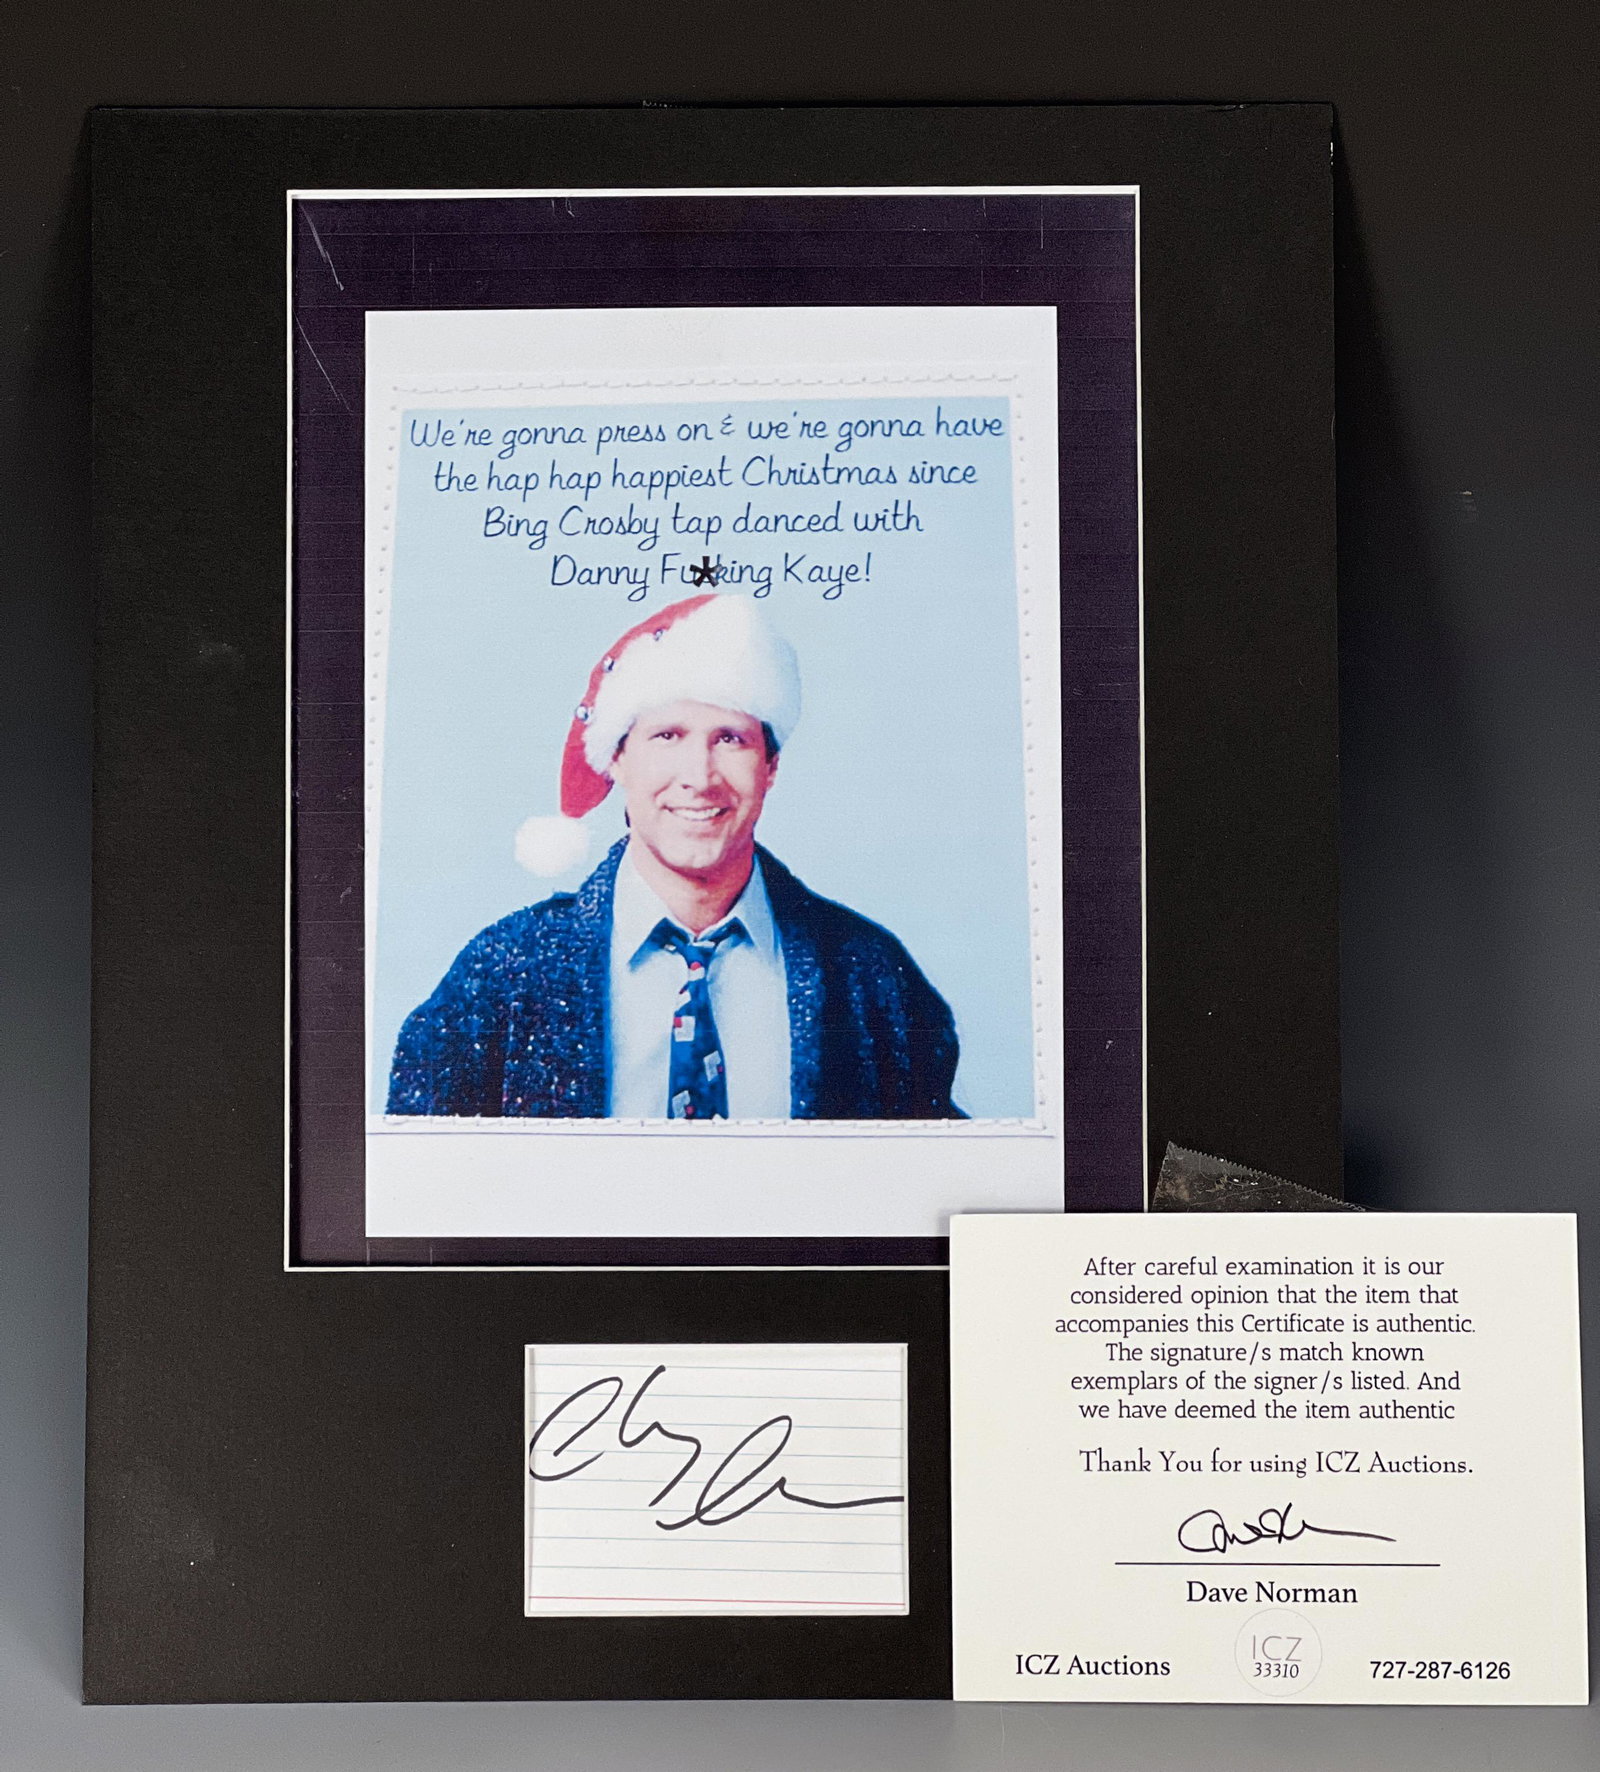 We're gonna press on & we're gonna have
the hap hap happiest Christmas since
Bing Crosby tap danced with
Danny Fu*king Kaye!
After careful examination it is our
considered opinion that the item that
accompanies this Certificate is authentic.
The signature/s match known
exemplars of the signer/s listed. And
we have deemed the item authentic
Thank You for using ICZ Auctions.
Dave Norman
ICZ Auctions
ICZ
33310
727-287-6126